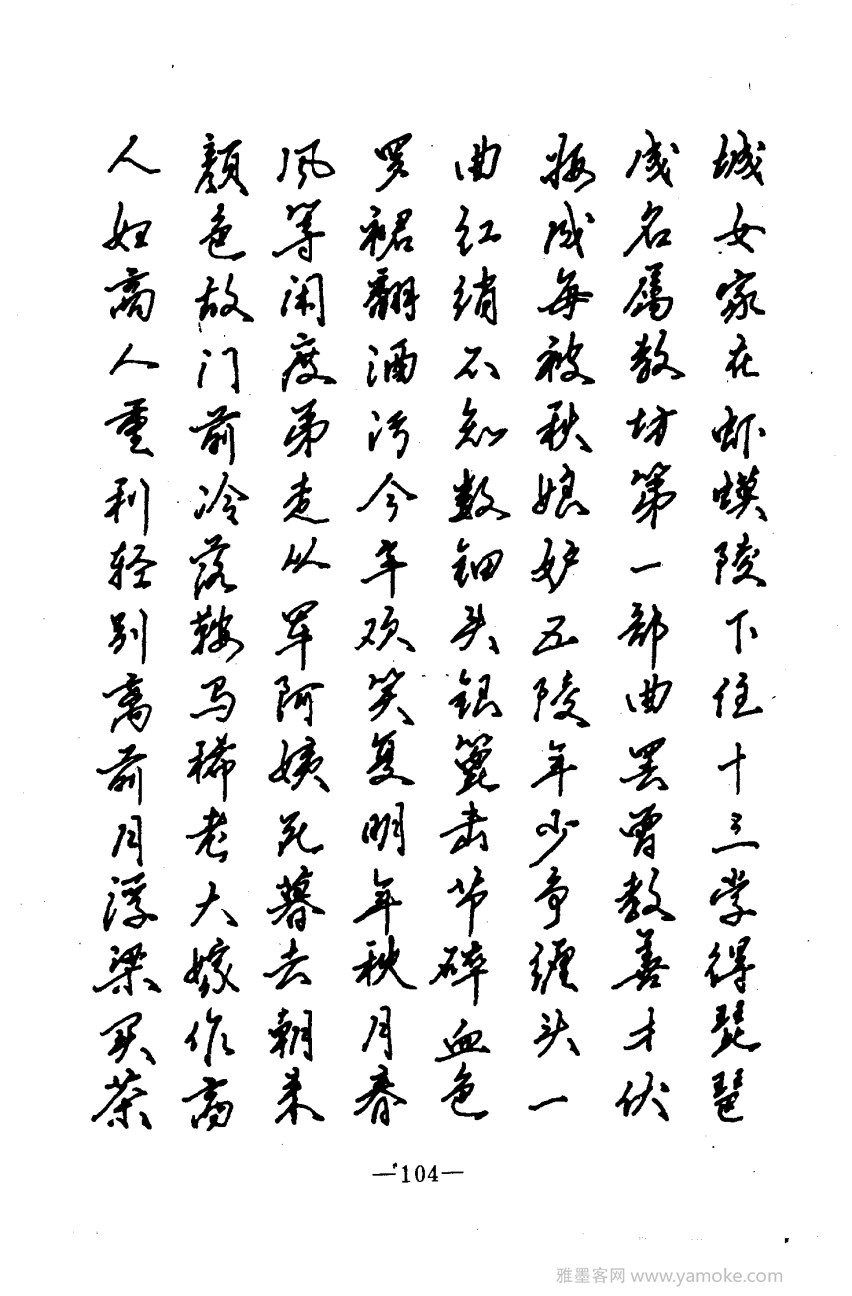 城女家在虾蟆陵下住十三学得琵琶
成名属教坊第一部曲罢曾教善才伏
妆成每被秋娘妒五陵年少争缠头一
曲红绡不知数钿头银篦击节碎血色
罗裙翻酒污今年欢笑复明年秋月春
风等闲度弟走从军阿姨死暮去朝来
颜色故门前冷落鞍马稀老大嫁作商
人妇商人重利轻别离前月浮梁买茶
—104—
雅墨客网 www.yamoke.com